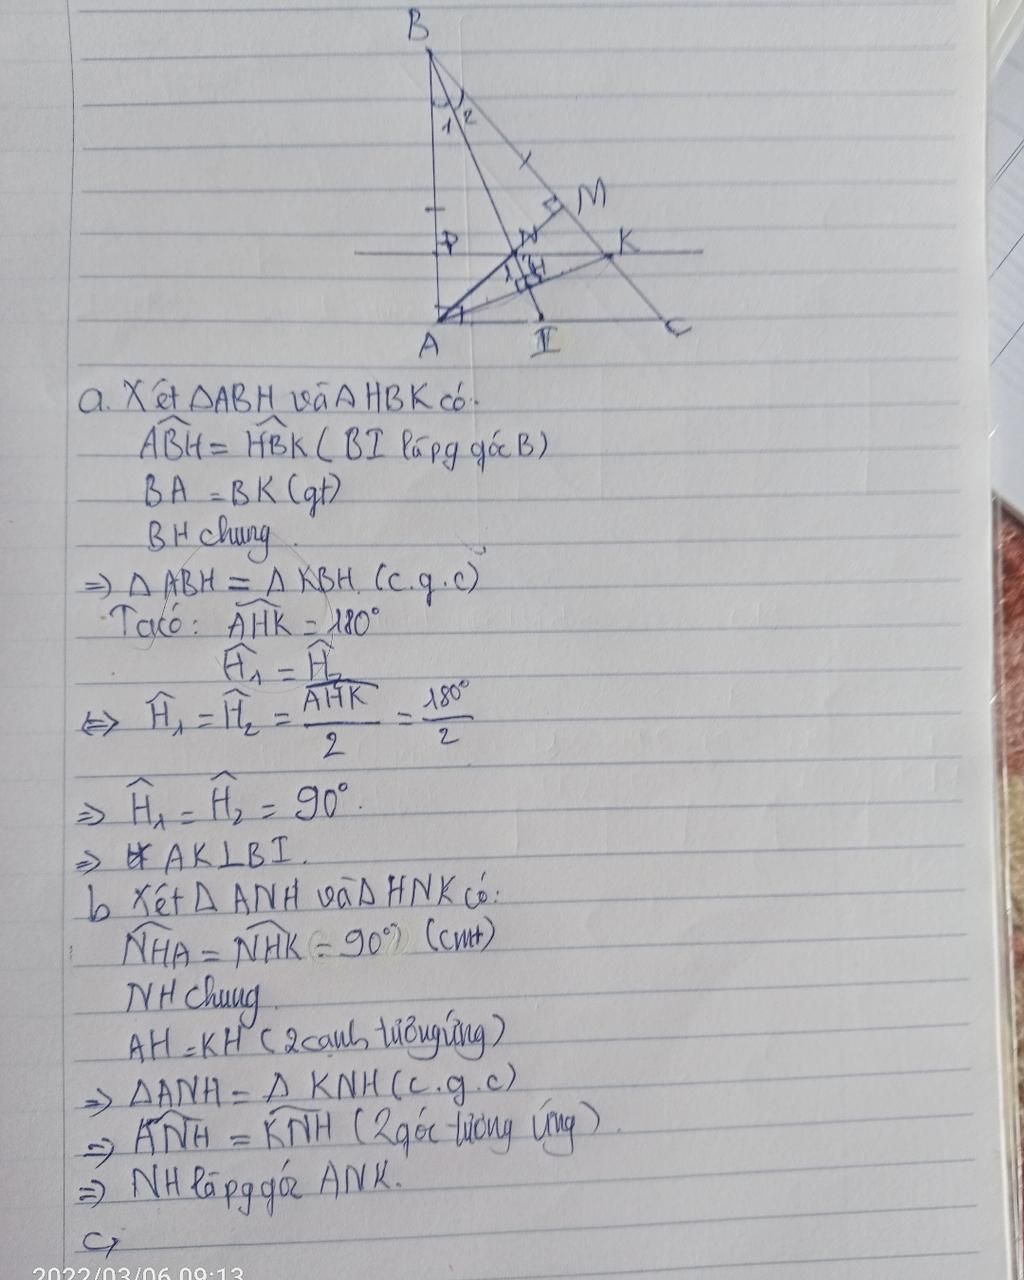 B
1 2
M
P N K
1 2 H
A I C
a. Xét ΔABH và ΔHBK có:
ABH = HBK (BI là pg góc B)
BA = BK (gt)
BH chung.
=> ΔABH = ΔKBH. (c.g.c)
Ta có: AHK = 180°
H₁ = H₂
<=> H₁ = H₂ = AHK/2 = 180°/2
=> H₁ = H₂ = 90°.
=> AK⊥BI.
b Xét Δ ANH và Δ HNK có:
NHA = NHK = 90° (cmt)
NH chung.
AH = KH (2 cạnh tương ứng)
=> ΔANH = Δ KNH (c.g.c)
=> ANH = KNH (2 góc tương ứng).
=> NH là pg góc ANK.
c,
2022/03/06 09:13